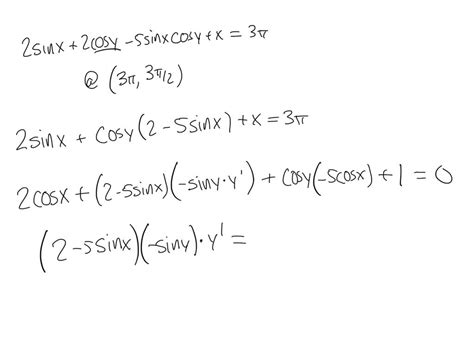 2sinx + 2cosy - 5sinxcosy + x = 3π
@ (3π, 3π/2)
2sinx + cosy(2 - 5sinx) + x = 3π
2cosx + (2-5sinx)(-siny·y') + cosy(-5cosx) + 1 = 0
(2-5sinx)(-siny)·y' =